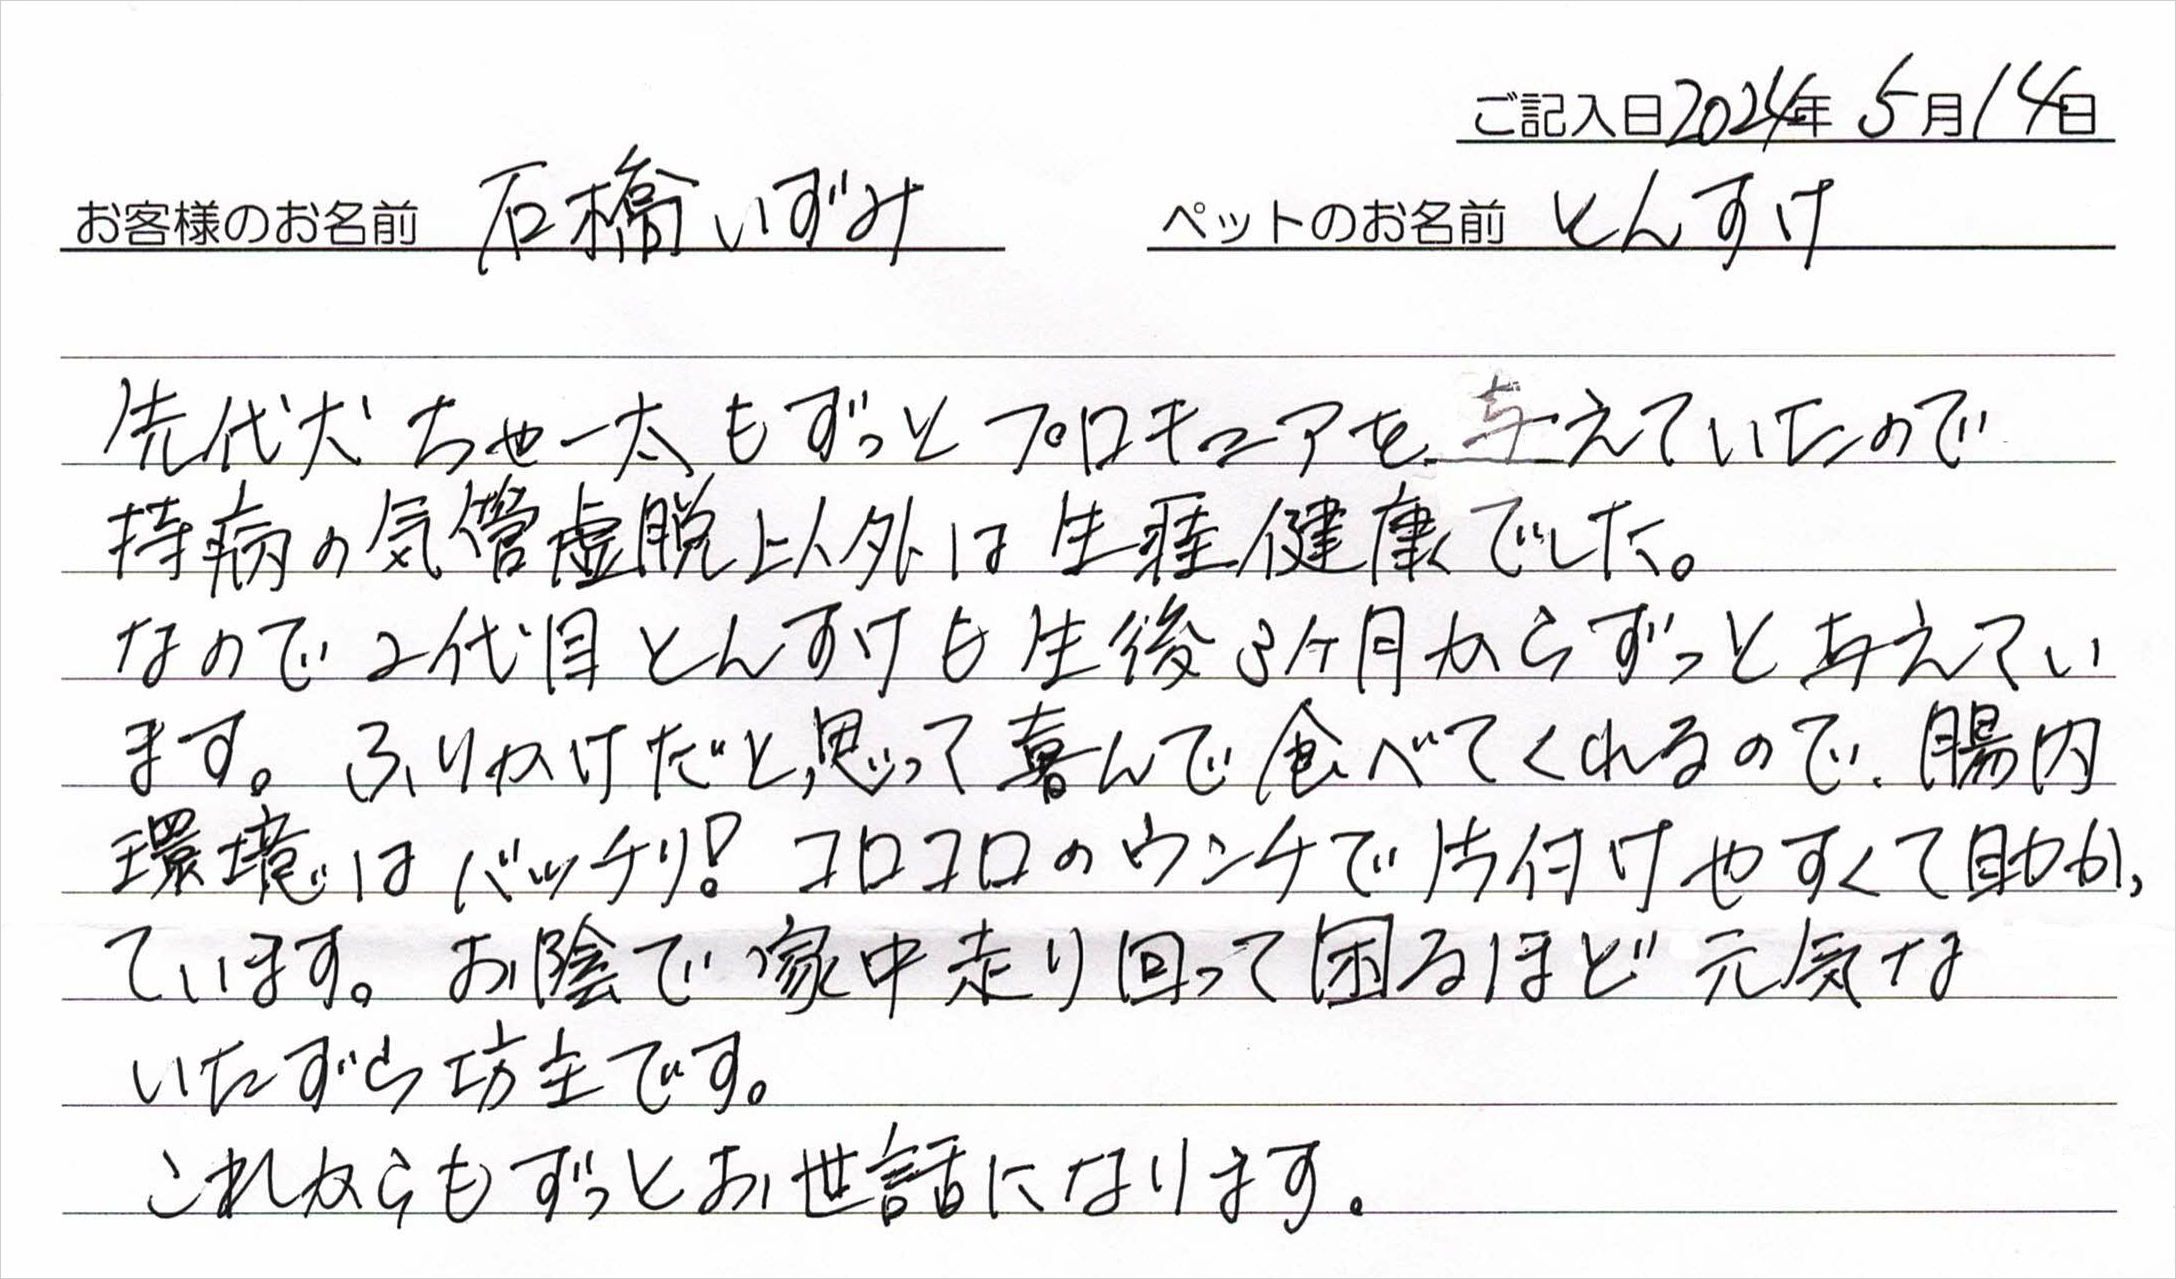 ご記入日2024年5月14日
お客様のお名前 石橋いずみ ペットのお名前 とんすけ
先代犬ちゃ一太もずっとプロキュアを与えていたので
持病の気管虚脱以外は生涯健康でした。
なので2代目とんすけも生後3ヶ月からずっと与えてい
ます。ふりかけだと思って喜んで食べてくれるので、腸内
環境はバッチリ!コロコロのウンチで片付けやすくて助かっ
ています。お陰で家中走り回って困るほど元気な
いたずら坊主です。
これからもずっとお世話になります。